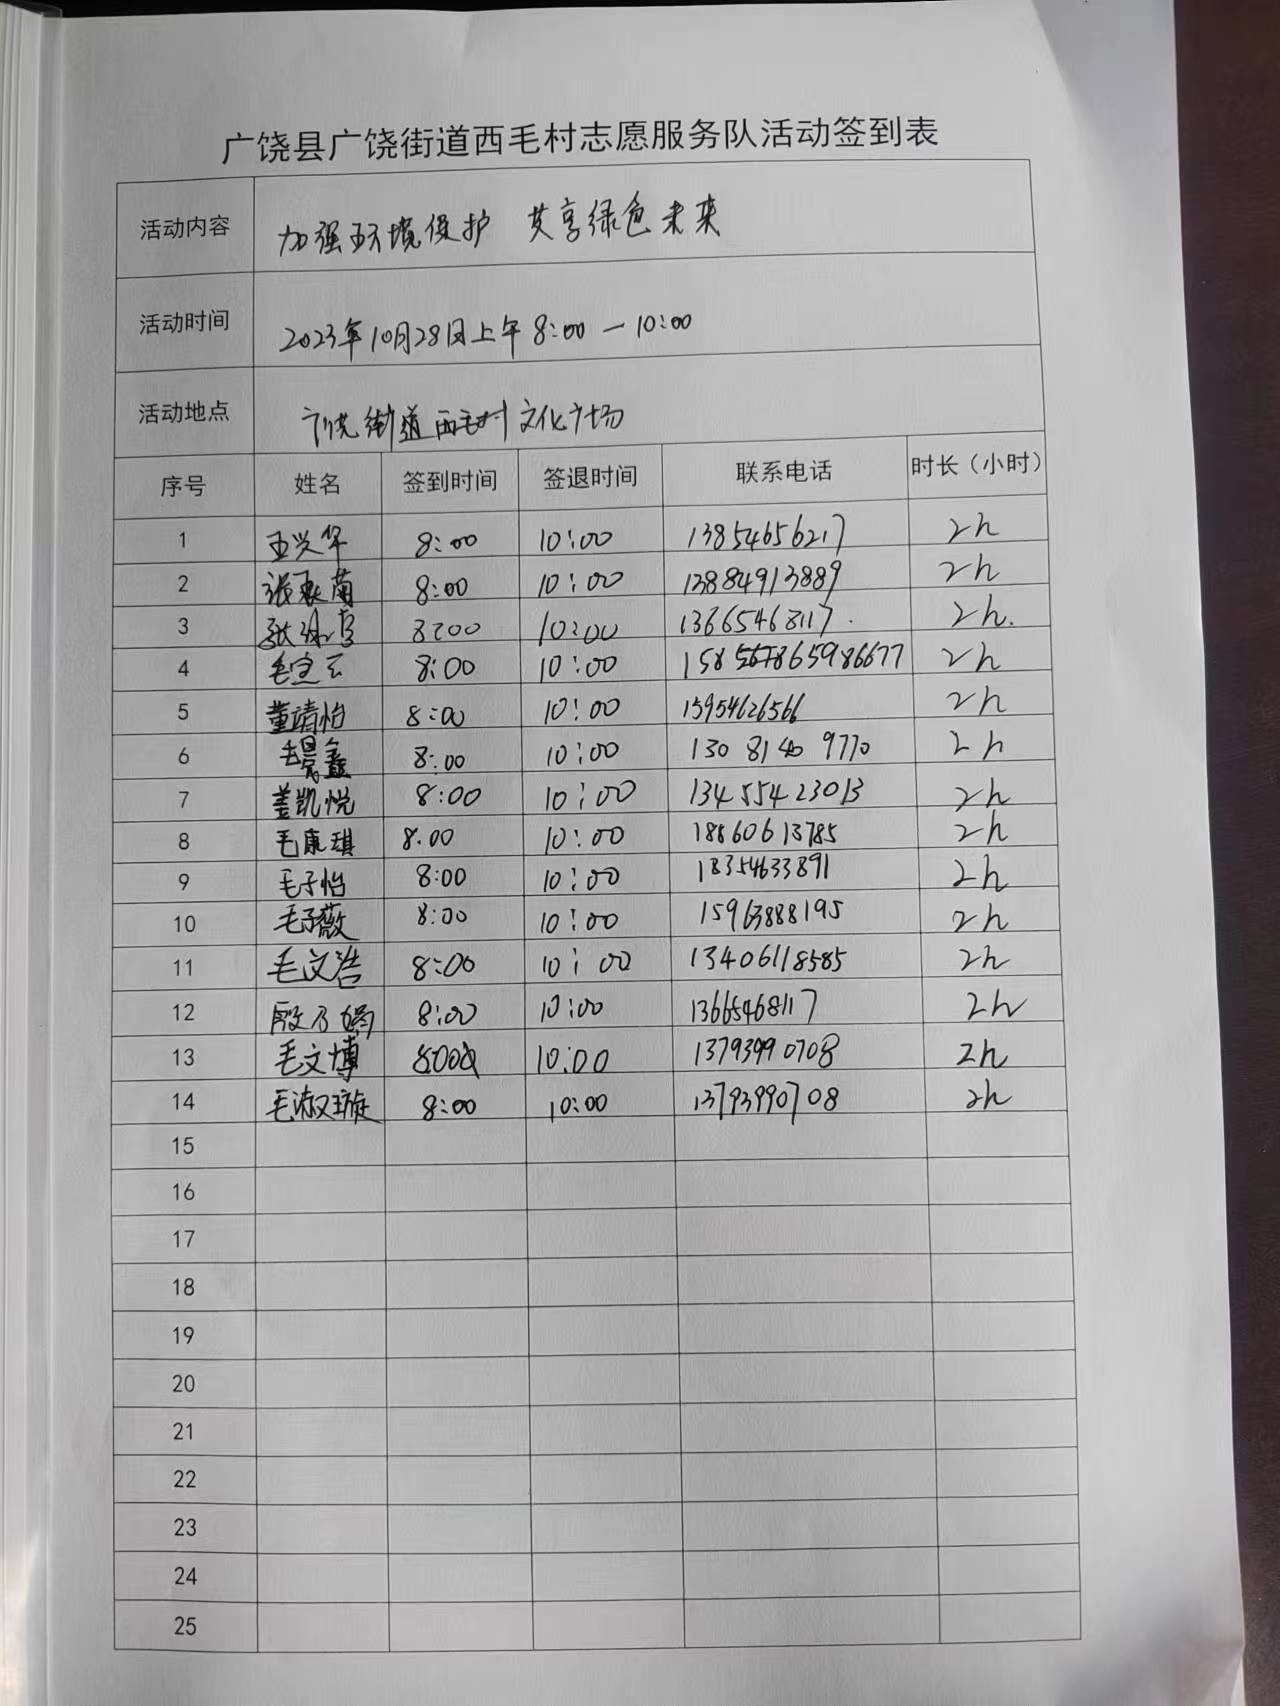 广饶县广饶街道西毛村志愿服务队活动签到表
活动内容 加强环境保护 共享绿色未来
活动时间 2023年10月28日上午8:00—10:00
活动地点 广饶街道西毛村文化广场
序号 姓名 签到时间 签退时间 联系电话 时长（小时）
1 王兴华 8:00 10:00 13854656217 2h
2 8:00 10:00 13884913889 2h
3 8:00 10:00 13665468117. 2h.
4 8:00 10:00 2h
5 董靖怡 8:00 10:00 15954626566 2h
6 8:00 10:00 130 8140 9770 2h
7 姜凯悦 8:00 10:00 13455423013 2h
8 毛康琪 8:00 10:00 18860613785 2h
9 毛子怡 8:00 10:00 18354633891 2h
10 毛子薇 8:00 10:00 15963888195 2h
11 毛文浩 8:00 10:00 13406118585 2h
12 殷乃嫣 8:00 10:00 13665468117 2h
13 毛文博 8:00 10:00 13793990708 2h
14 毛淑璇 8:00 10:00 13793990708 2h
15
16
17
18
19
20
21
22
23
24
25